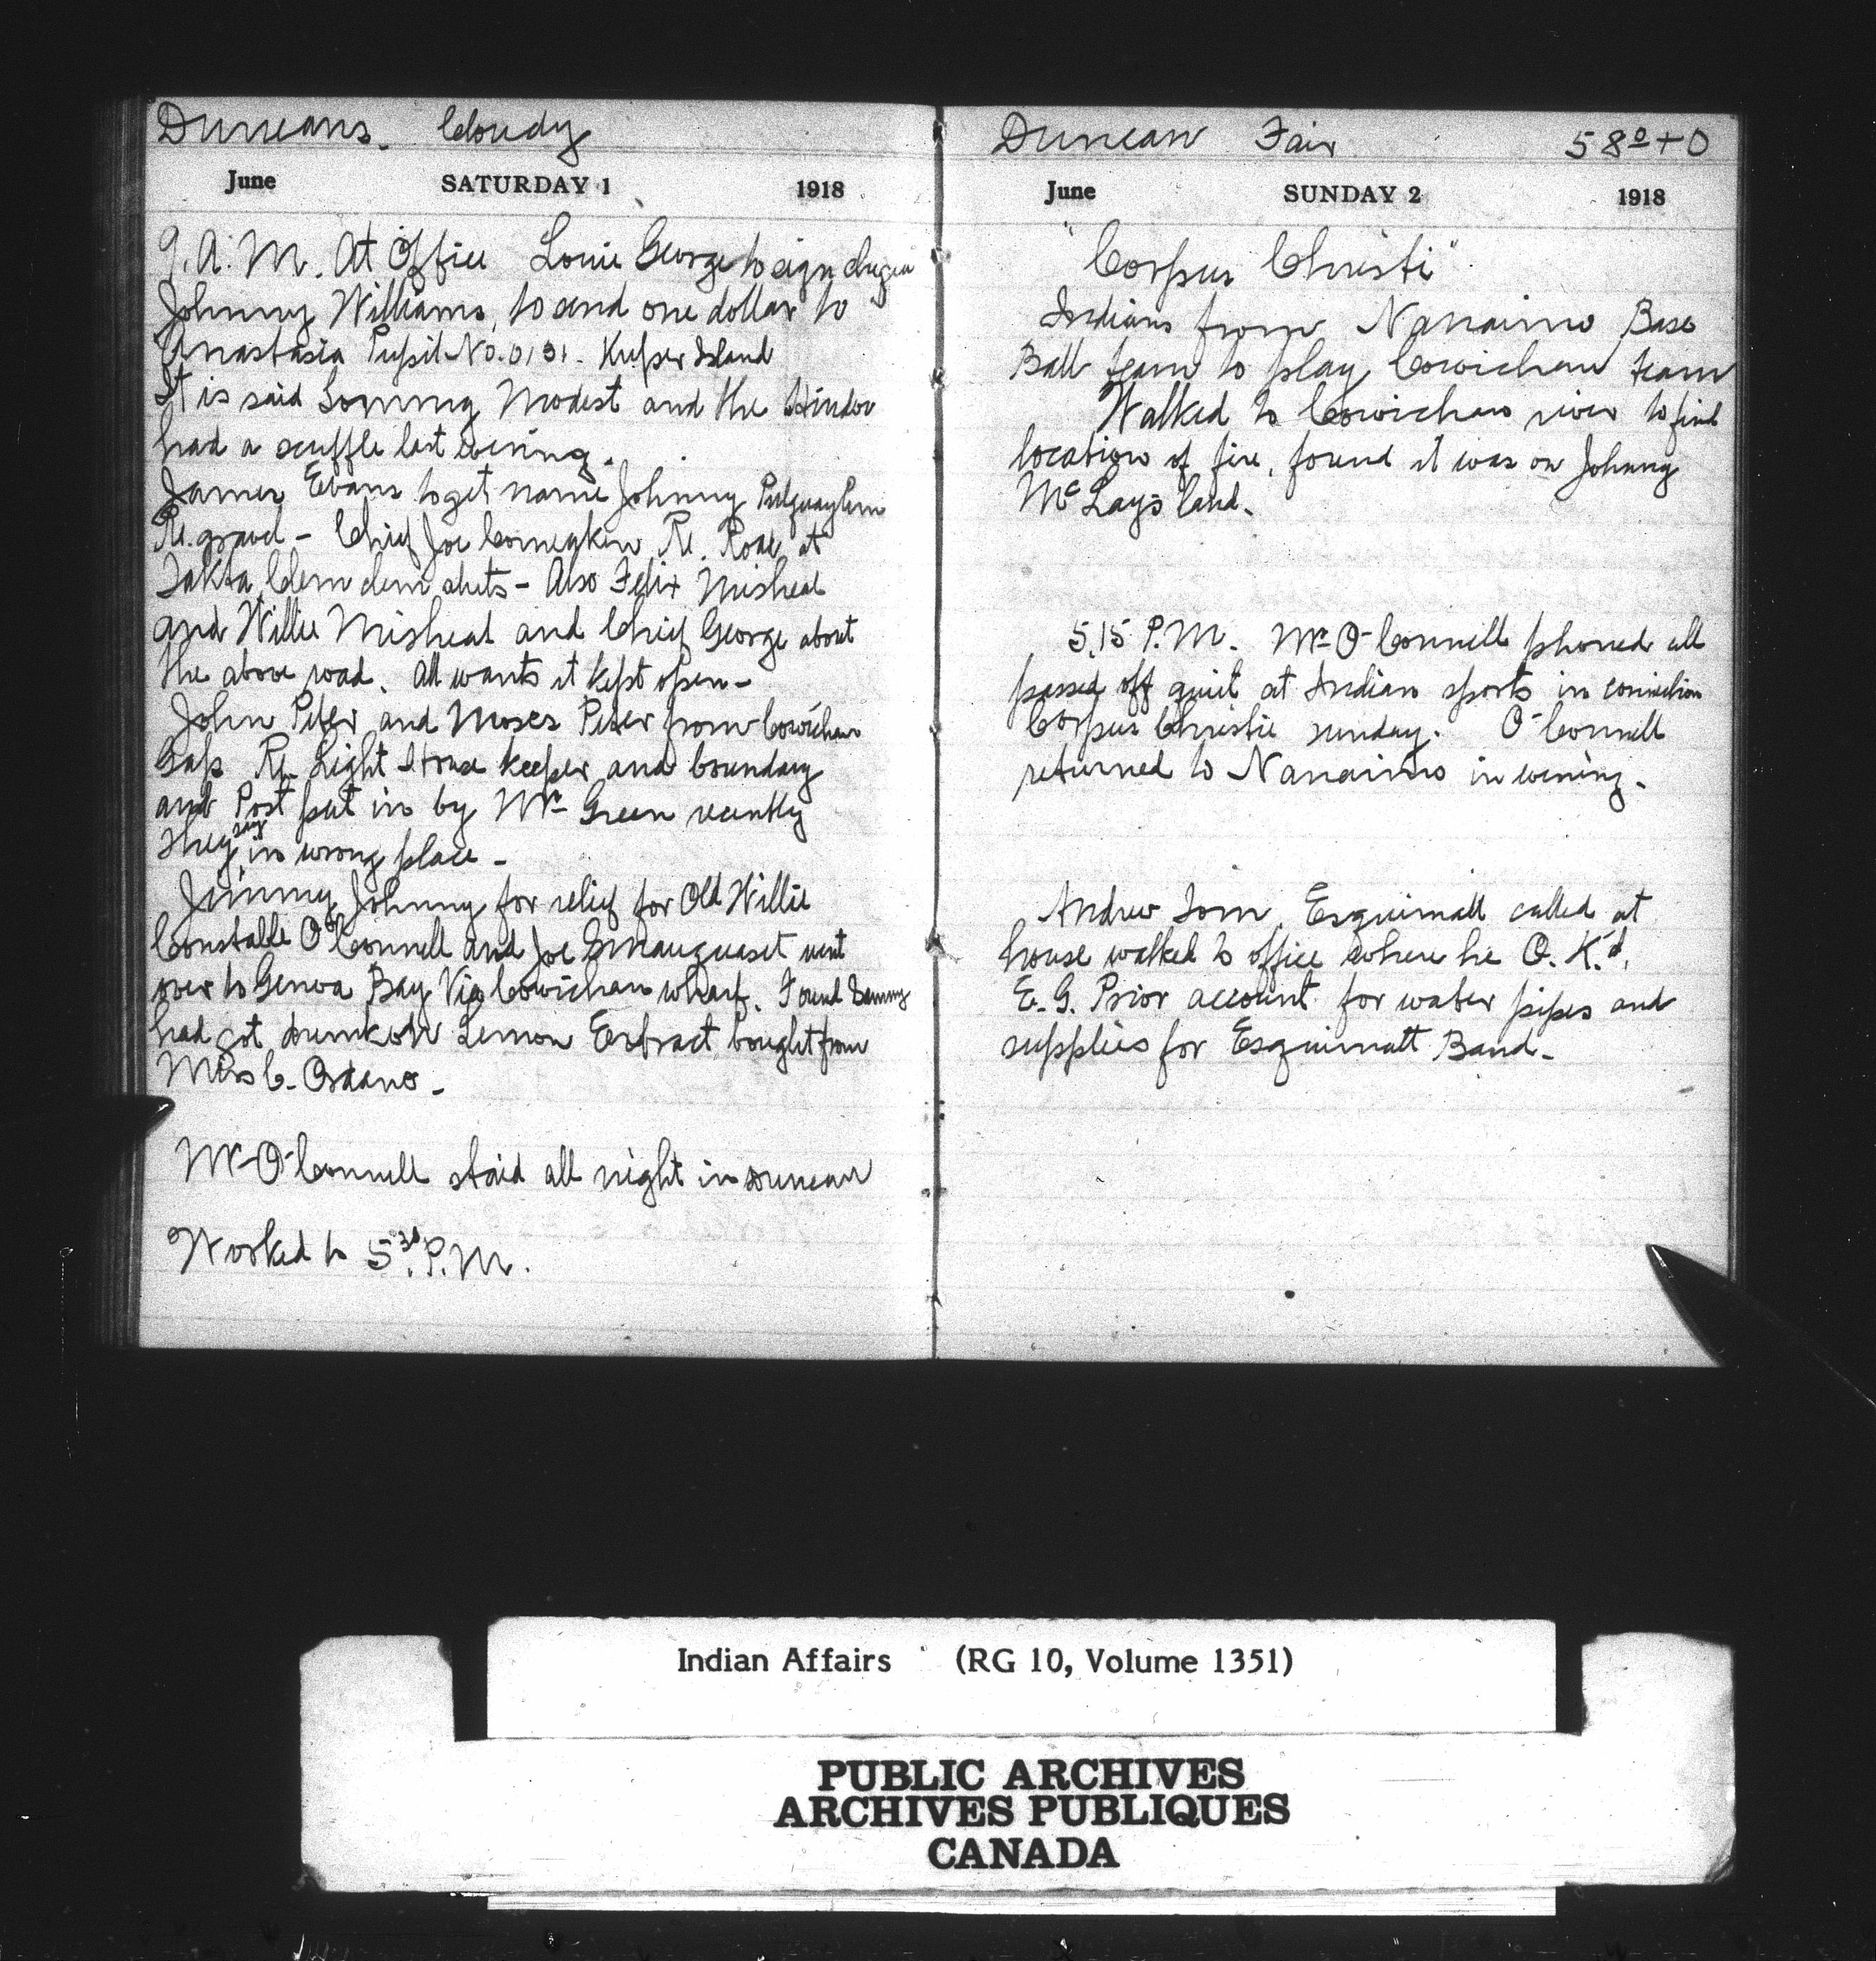 Duncans. Cloudy
June SATURDAY 1 1918
9. A. M. At Office Louie George to sign cheque
Johnny Williams, to send one dollar to
Anastasia Pupil No. 0131. Kuper Island
It is said Tommy Modest and the Hindoo
had a scuffle last evening.
James Evans to get name Johnny
Re. gravel - Chief Joe Comeaken Re. Road at
Takta, Clem clem aluts - Also Felix Misheal
and Willie Misheal and Chief George about
the above road. All wants it kept open -
John Peter and Moses Peter from Cowichan
Gap Re. Light House keeper and boundary
and Post put in by Mr Green recently
They say in wrong place -
Jimmy Johnny for relief for Old Willie
Constable O'Connell and Joe went
over to Genoa Bay Via Cowichan wharf. Found Sammy
had got drunk on Lemon Extract bought from
C.
Mr O'Connell staid all night in Duncan
Worked to 5.30 P.M.
Duncan Fair 58º+0
June SUNDAY 2 1918
"Corpus Christi"
Indians from Nanaimo Base
Ball team to play Cowichan team
Walked to Cowichan river to find
location of fire, found it was on Johnny
McLay's land.
5.15 P.M. Mr O'Connell phoned all
passed off quiet at Indian sports in connection
Corpus Christie sunday. O'Connell
returned to Nanaimo in evening.
Andrew Tom, Esquimalt called at
house walked to office where he O. K.'d,
E. G. Prior account for water pipes and
supplies for Esquimalt Band -
Indian Affairs (RG 10, Volume 1351)
PUBLIC ARCHIVES
ARCHIVES PUBLIQUES
CANADA